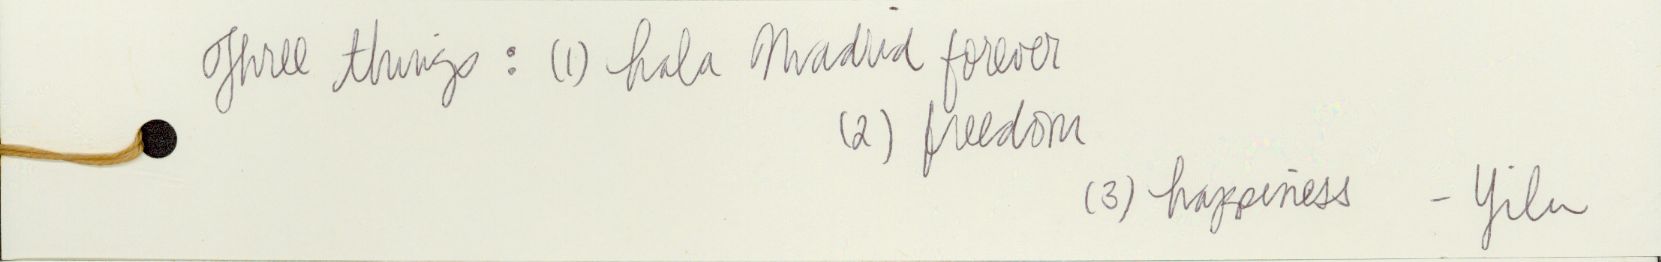 Three things : (1) hala Madrid forever
(2) freedom
(3) happiness - Yilu